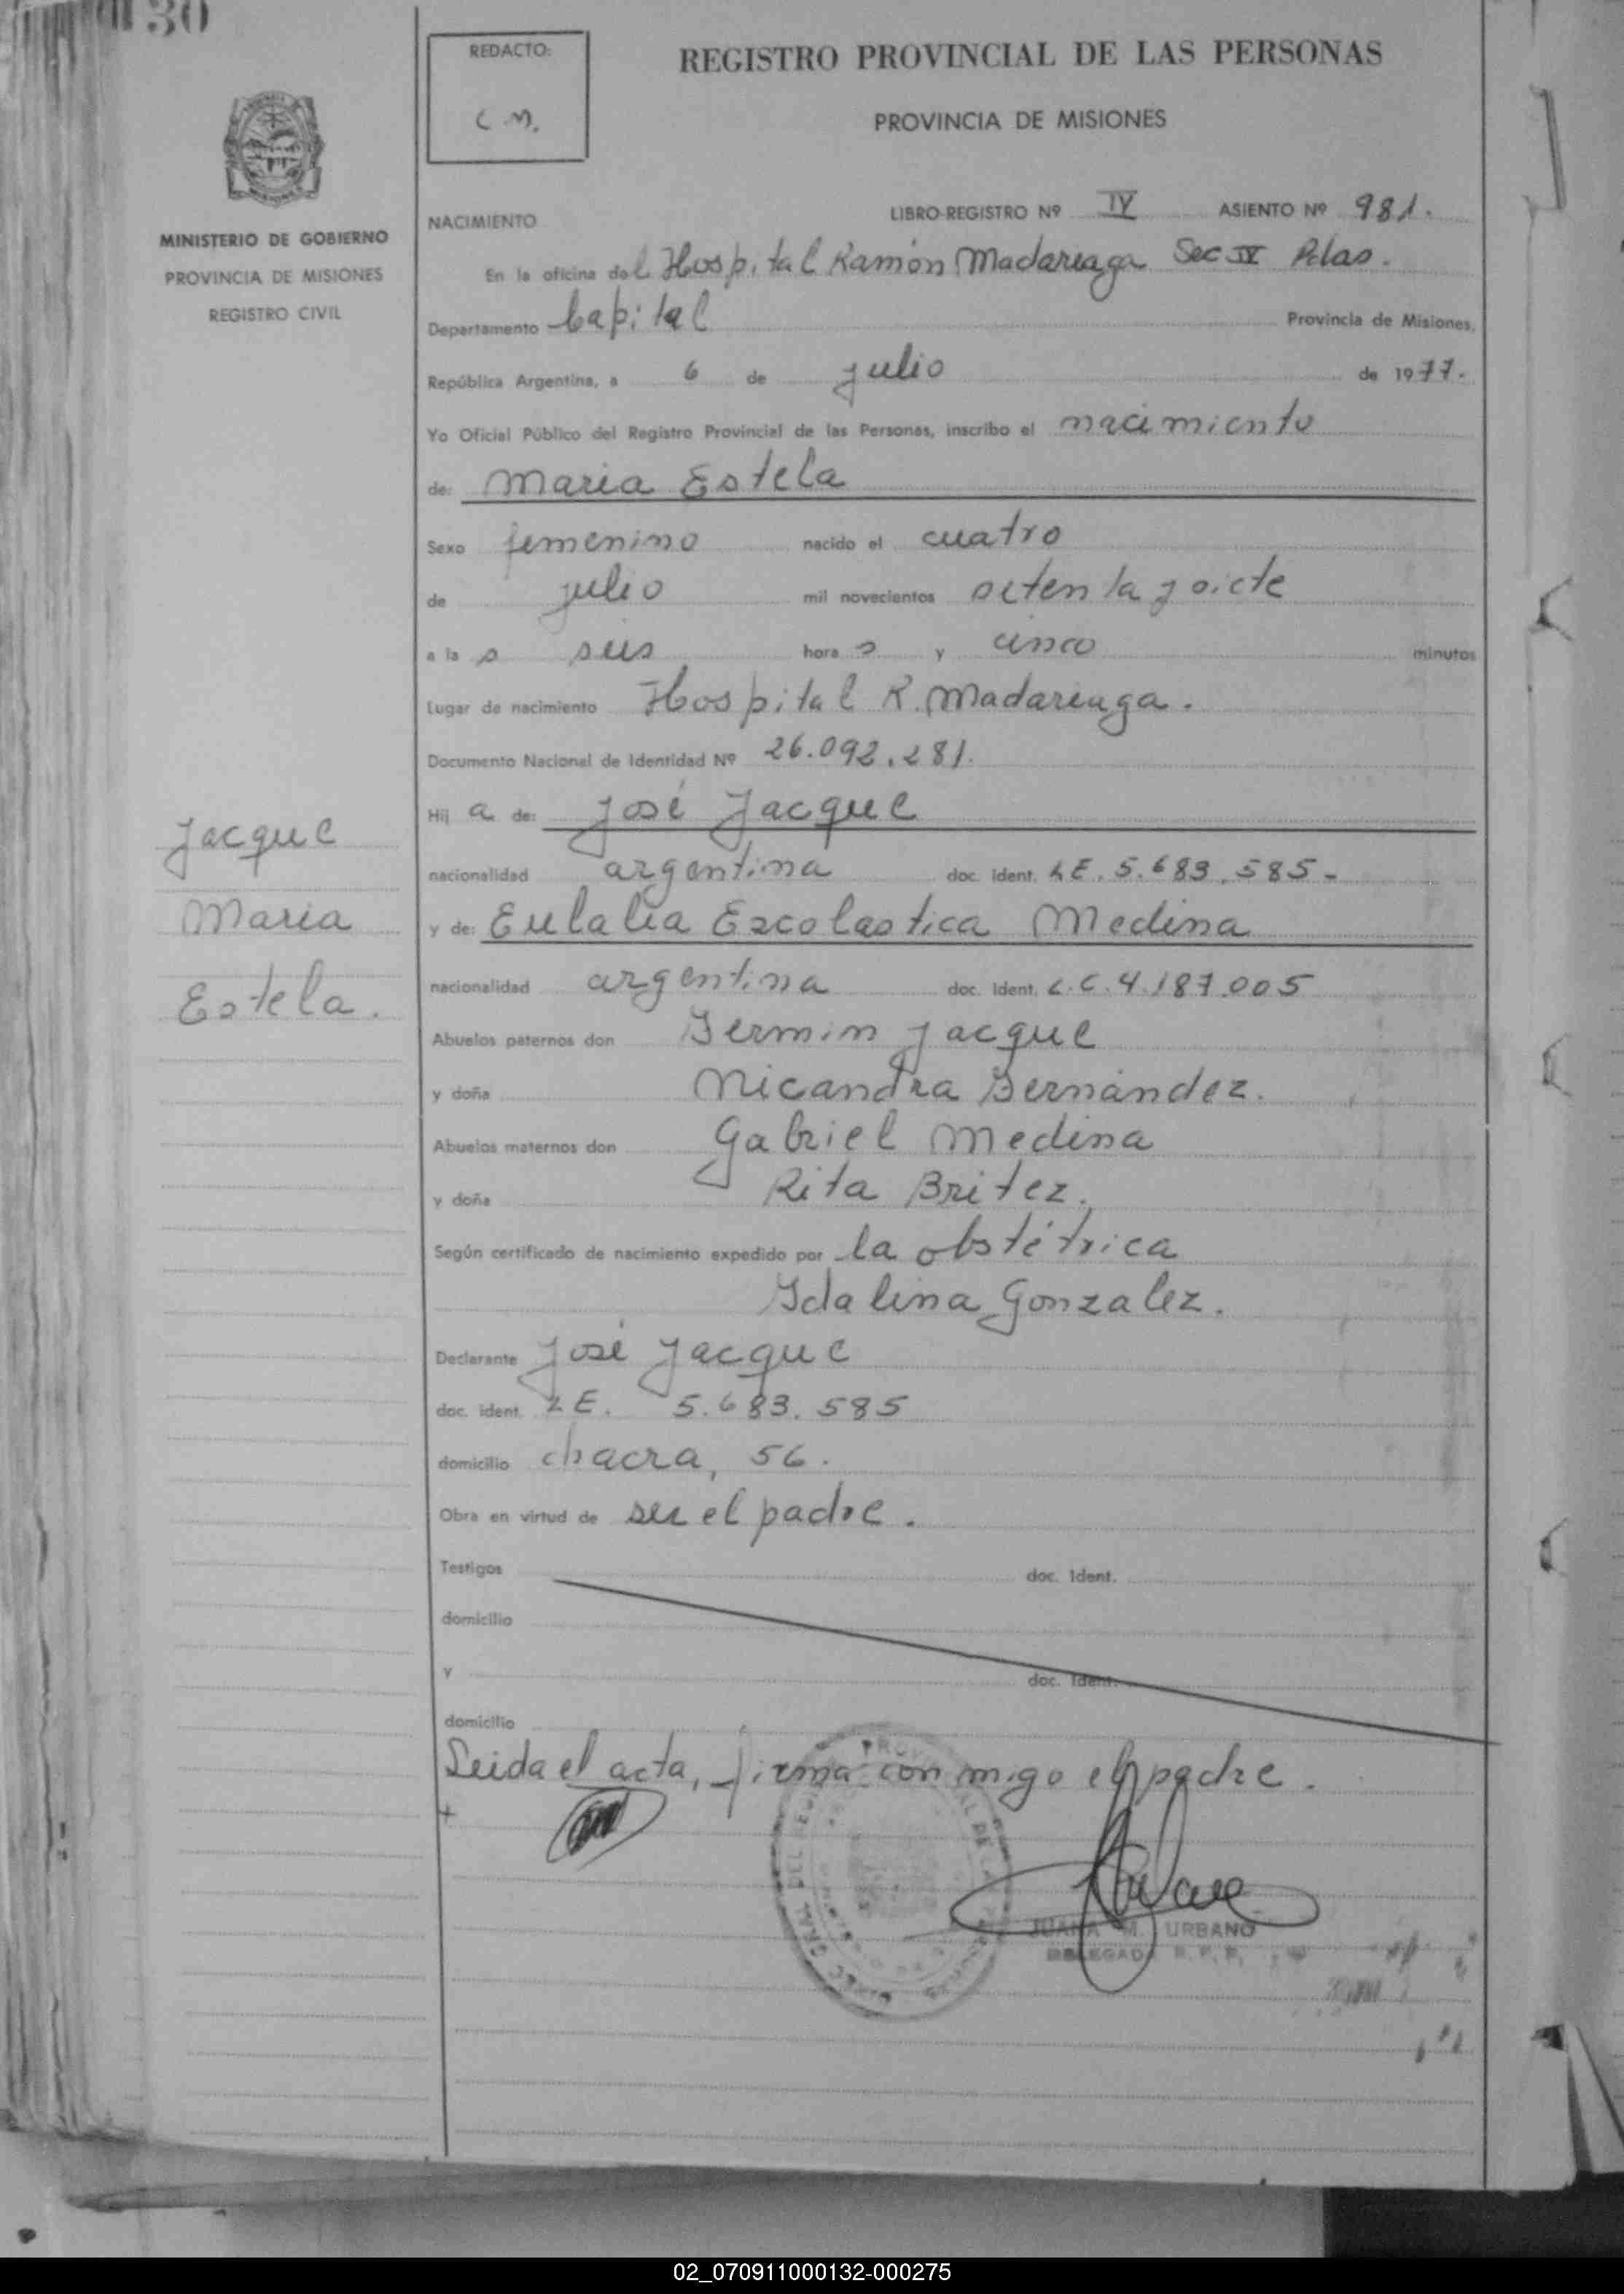 30
REDACTO:
C.M.
REGISTRO PROVINCIAL DE LAS PERSONAS
PROVINCIA DE MISIONES
MINISTERIO DE GOBIERNO
PROVINCIA DE MISIONES
REGISTRO CIVIL
NACIMIENTO
LIBRO-REGISTRO Nº IV ASIENTO Nº 981.
En la oficina del Hospital Ramón Madariaga Sec IV Pdas.
Departamento Capital Provincia de Misiones,
República Argentina, a 6 de julio de 1977.
Yo Oficial Público del Registro Provincial de las Personas, inscribo el nacimiento
de: Maria Estela
Sexo femenino nacido el cuatro
de julio mil novecientos setenta y siete
a la s seis hora s y cinco minutos
Lugar de nacimiento Hospital R. Madariaga.
Documento Nacional de Identidad Nº 26.092.281.
Hij a de: José Jacque
nacionalidad argentina doc. ident. LE. 5.683.585-
y de: Eulalia Escolastica Medina
nacionalidad argentina doc. Ident. L.C. 4.187.005
Abuelos paternos don Fermin Jacque
y doña Nicandra Fernández.
Abuelos maternos don Gabriel Medina
y doña Rita Britez.
Según certificado de nacimiento expedido por la obstétrica
Idalina Gonzalez.
Declarante José Jacque
doc. ident. LE. 5.683.585
domicilio chacra, 56.
Obra en virtud de ser el padre.
Testigos doc. Ident.
domicilio
y doc. Ident.
domicilio
Leida el acta, firma conmigo el padre.
JUANA M. URBANO
DELEGADA R.P.P.
Jacque
Maria
Estela.
02_070911000132-000275